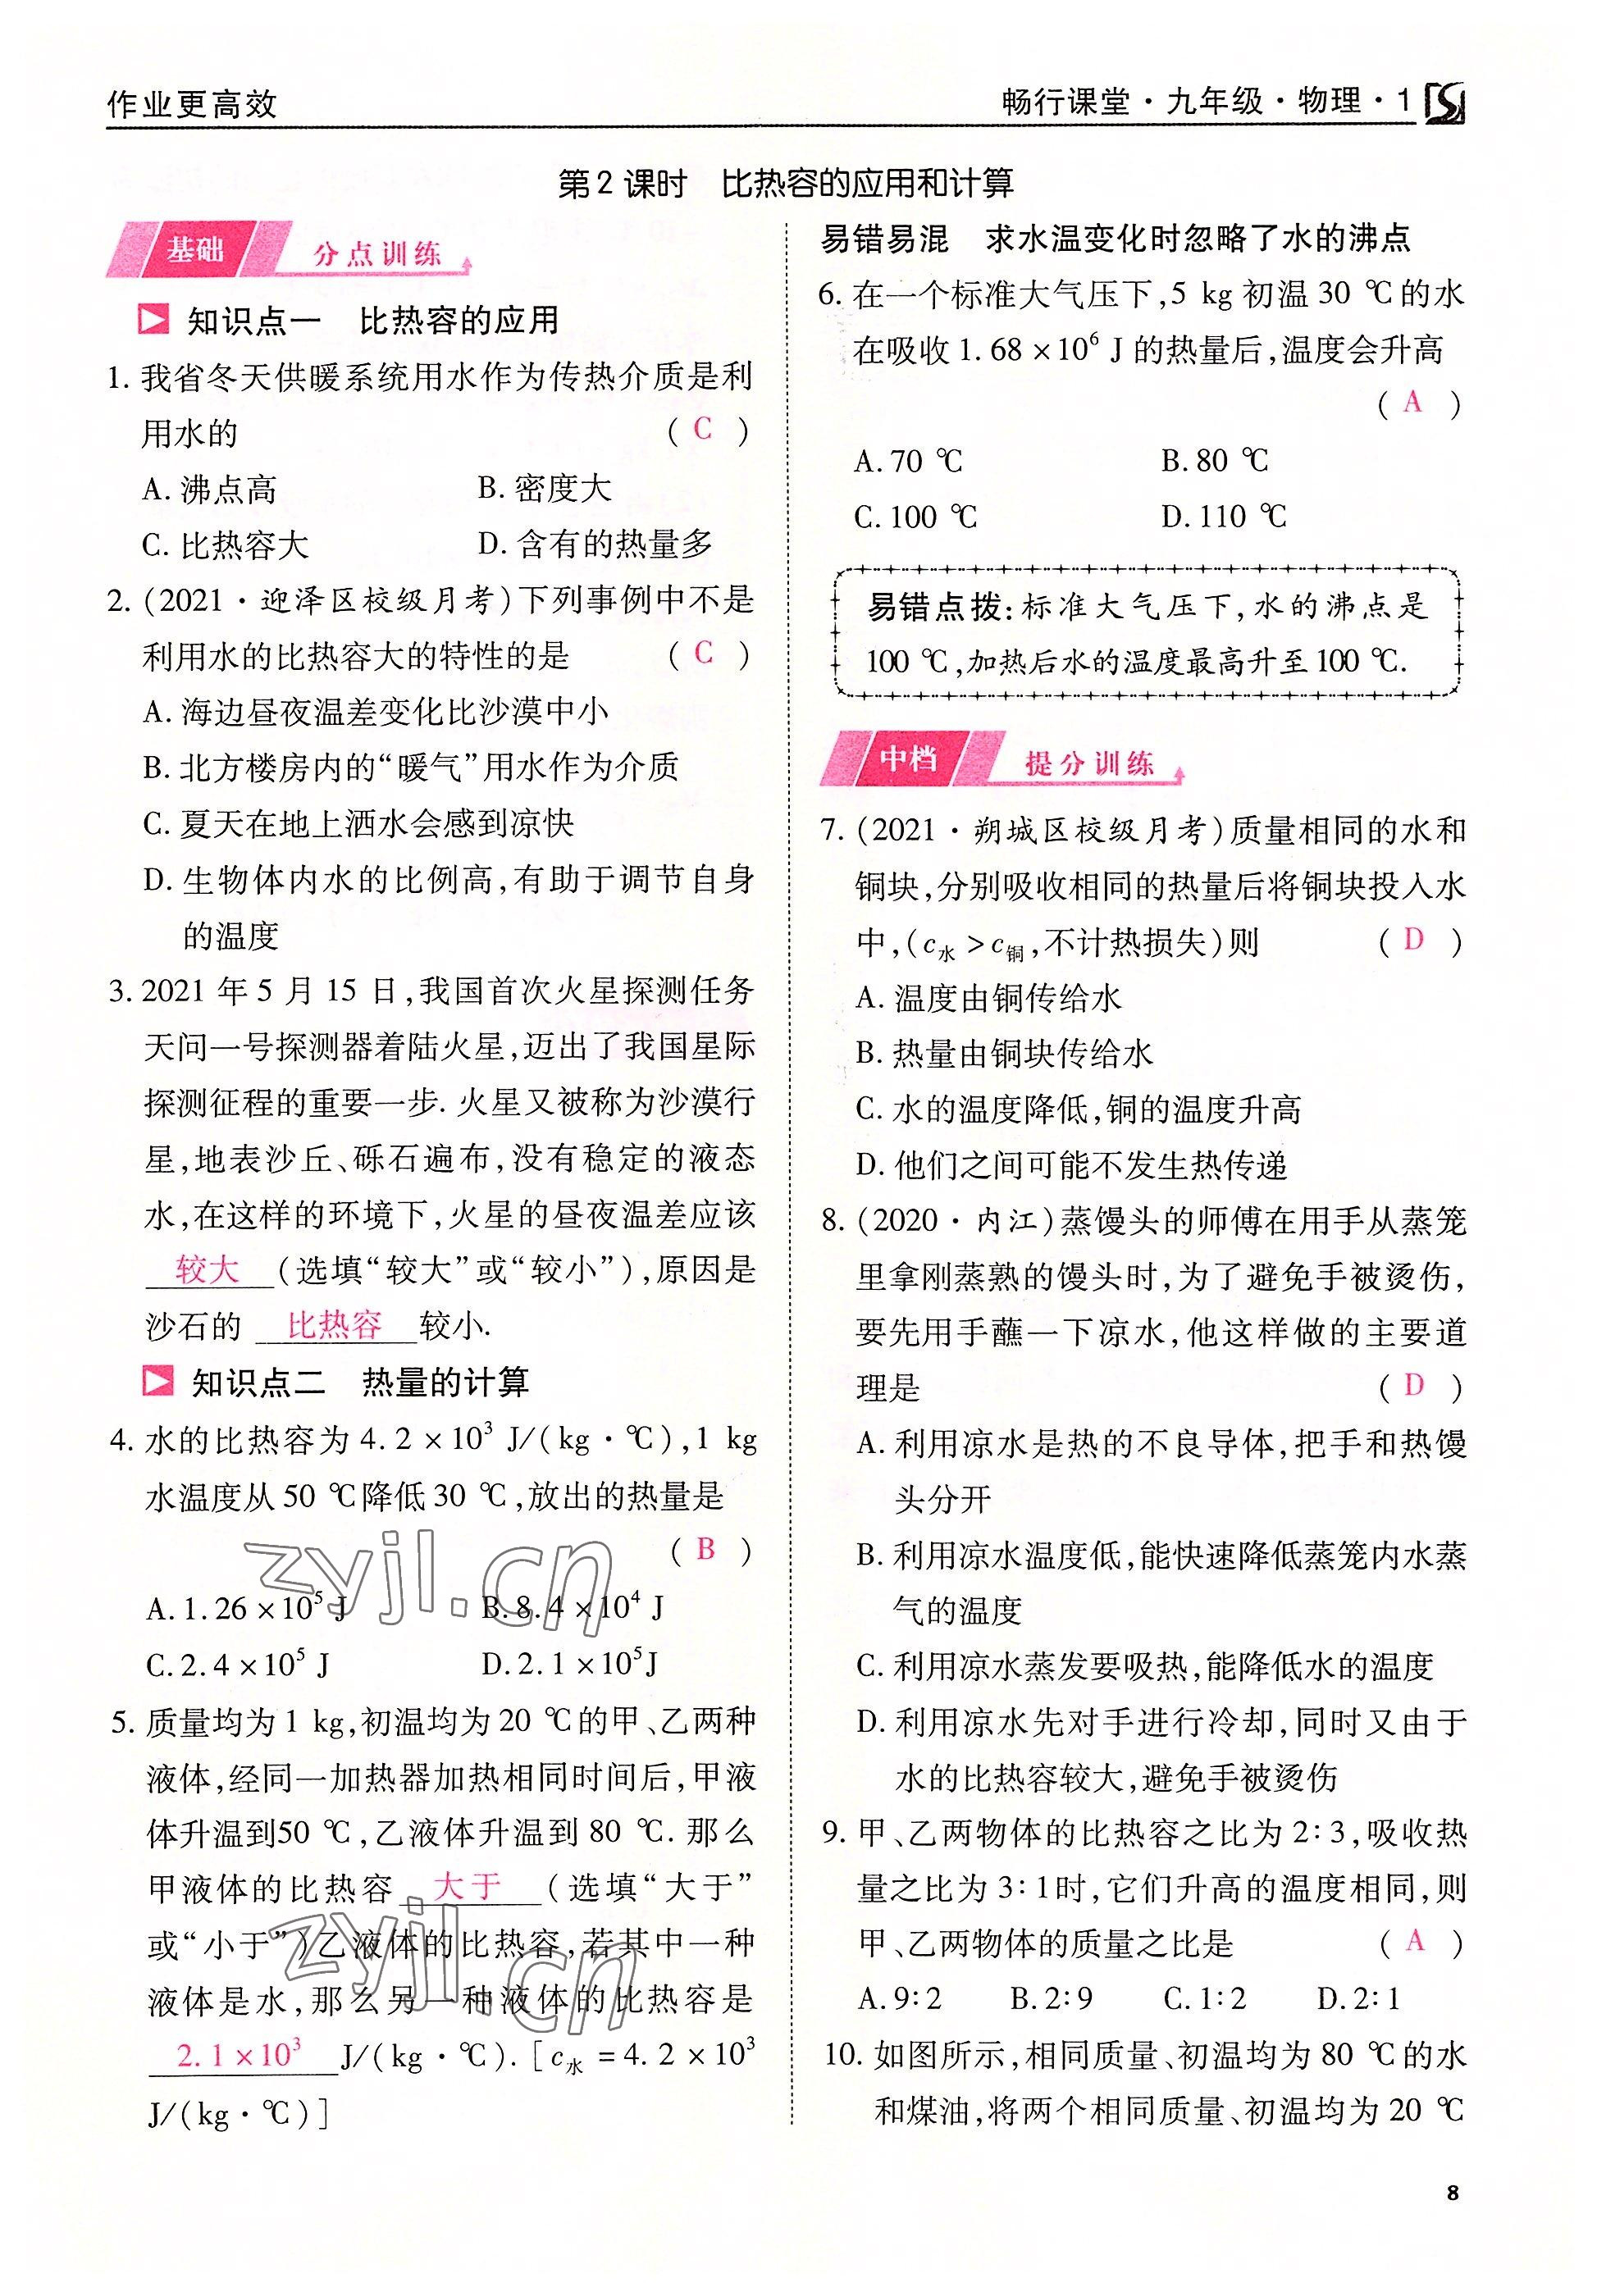 作业更高效
畅行课堂·九年级·物理·1
第2课时　比热容的应用和计算
基础　分点训练
知识点一　比热容的应用
1. 我省冬天供暖系统用水作为传热介质是利
用水的　( C )
A. 沸点高　B. 密度大
C. 比热容大　D. 含有的热量多
2. (2021·迎泽区校级月考)下列事例中不是
利用水的比热容大的特性的是　( C )
A. 海边昼夜温差变化比沙漠中小
B. 北方楼房内的“暖气”用水作为介质
C. 夏天在地上洒水会感到凉快
D. 生物体内水的比例高,有助于调节自身
的温度
3. 2021年5月15日,我国首次火星探测任务
天问一号探测器着陆火星,迈出了我国星际
探测征程的重要一步. 火星又被称为沙漠行
星,地表沙丘、砾石遍布,没有稳定的液态
水,在这样的环境下,火星的昼夜温差应该
较大(选填“较大”或“较小”),原因是
沙石的 比热容 较小.
知识点二　热量的计算
4. 水的比热容为4.2×10³ J/(kg·℃),1 kg
水温度从50 ℃降低30 ℃,放出的热量是
( B )
A. 1.26×10⁵ J　B. 8.4×10⁴ J
C. 2.4×10⁵ J　D. 2.1×10⁵J
5. 质量均为1 kg,初温均为20 ℃的甲、乙两种
液体,经同一加热器加热相同时间后,甲液
体升温到50 ℃,乙液体升温到80 ℃. 那么
甲液体的比热容 大于 (选填“大于”
或“小于”)乙液体的比热容,若其中一种
液体是水,那么另一种液体的比热容是
2.1×10³ J/(kg·℃). [c水=4.2×10³
J/(kg·℃)]
易错易混　求水温变化时忽略了水的沸点
6. 在一个标准大气压下,5 kg初温30 ℃的水
在吸收1.68×10⁶ J的热量后,温度会升高
( A )
A. 70 ℃　B. 80 ℃
C. 100 ℃　D. 110 ℃
易错点拨:标准大气压下,水的沸点是
100 ℃,加热后水的温度最高升至100 ℃.
中档　提分训练
7. (2021·朔城区校级月考)质量相同的水和
铜块,分别吸收相同的热量后将铜块投入水
中,(c水>c铜,不计热损失)则　( D )
A. 温度由铜传给水
B. 热量由铜块传给水
C. 水的温度降低,铜的温度升高
D. 他们之间可能不发生热传递
8. (2020·内江)蒸馒头的师傅在用手从蒸笼
里拿刚蒸熟的馒头时,为了避免手被烫伤,
要先用手蘸一下凉水,他这样做的主要道
理是　( D )
A. 利用凉水是热的不良导体,把手和热馒
头分开
B. 利用凉水温度低,能快速降低蒸笼内水蒸
气的温度
C. 利用凉水蒸发要吸热,能降低水的温度
D. 利用凉水先对手进行冷却,同时又由于
水的比热容较大,避免手被烫伤
9. 甲、乙两物体的比热容之比为2∶3,吸收热
量之比为3∶1时,它们升高的温度相同,则
甲、乙两物体的质量之比是　( A )
A. 9∶2　B. 2∶9　C. 1∶2　D. 2∶1
10. 如图所示,相同质量、初温均为80 ℃的水
和煤油,将两个相同质量、初温均为20 ℃
8
zyjl.cn
zyjl.cn